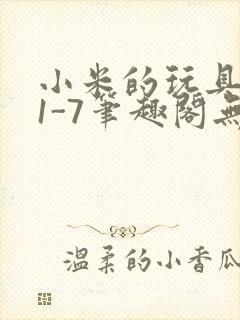 小米的玩具
1-7筆趣閣無
温柔的小香瓜